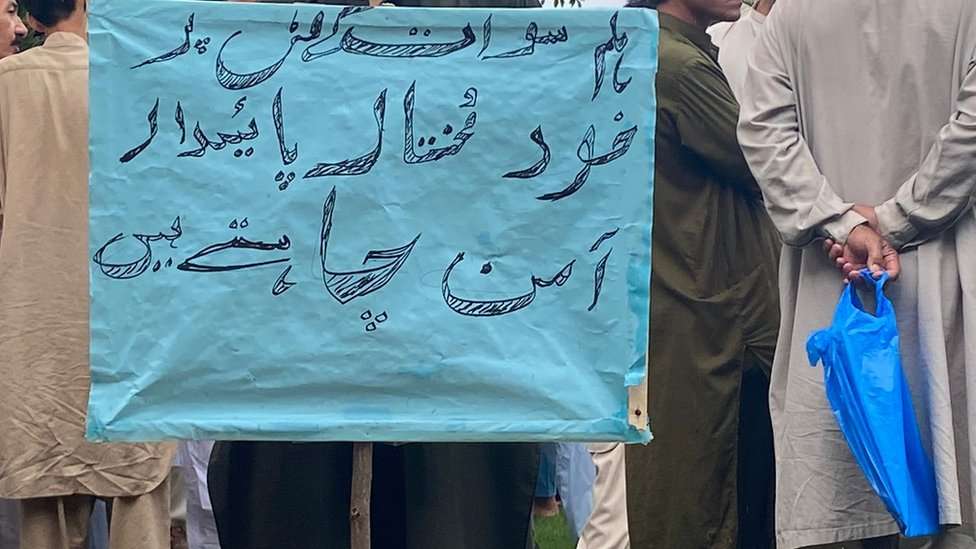 ہم سوات پر
خود مُختار پائیدار
امن چاہتے ہیں